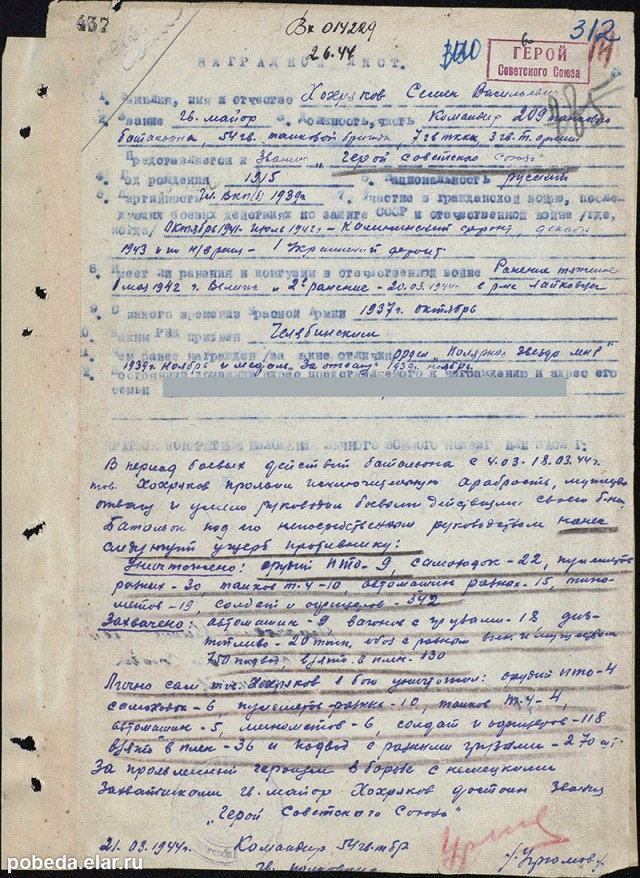 437
Вх 014229
2.6.44
312
ГЕРОЙ
Советского Союза
НАГРАДНОЙ ЛИСТ.
1. Фамилия, имя и отчество Хохряков Семен Васильевич
2. Звание гв. майор 3. Должность, часть Командир 209 танкового
батальона, 54 гв. танковой бригады, 7 гв ткк, 3 гв. т. армии
Представляется к Званию „Герой Советского Союза"
4. Год рождения 1915 5. Национальность русский
6. Партийность ВКП(б) 1939г 7. Участие в гражданской войне, после-
дующих боевых действиях по защите СССР и отечественной войне /где,
когда/ Октябрь 1941 - июль 1942г - Калининский фронт, декабрь
1943 и по н/время - I Украинский фронт
8. Имеет ли ранения и контузии в отечественной войне Ранение тяжелое
мая 1942 г. Велиж и 2е ранение - 20.03.1944г
9. С какого времени в Красной Армии 1937г. октябрь
10. Каким РВК призван Челябинским
11. Чем ранее награжден /за какие отличия орден „Полярная Звезда МНР"
1939г. ноябрь и медаль „За отвагу" 1939г. ноябрь.
12. Постоянный домашний адрес представляемого к награждению и адрес его
семьи
КРАТКОЕ КОНКРЕТНОЕ ИЗЛОЖЕНИЕ ЛИЧНОГО БОЕВОГО ПОДВИГА ИЛИ ЗАСЛУГ:
В период боевых действий батальона с 4.03 - 18.03.44г.
тов. Хохряков проявил исключительную храбрость, мужество
отвагу и умело руководил боевыми действиями своего б-на.
Батальон под его непосредственным руководством нанес
следующий ущерб противнику:
Уничтожено: орудий ПТО-9, самоходок-22, пулеметов
разных-30, танков Т.4-10, автомашин разных-15, мино-
метов-19, солдат и офицеров-342
Захвачено: автомашин-9 вагонов с грузами-18 диз-
топливо-20 тонн, обоз с разным воен. имуществом
750 подвод, взято в плен-130
Лично сам тов. Хохряков в бою уничтожил: орудий ПТО-4
самоходок-6, пулеметов разных-10, танков Т.4-4,
автомашин-5, минометов-6, солдат и офицеров-118
взято в плен-36 и подвод с разными грузами-270 шт.
За проявленный героизм в борьбе с немецкими
захватчиками гв. майор Хохряков достоин Звания
„Герой Советского Союза"
21.03.1944г. Командир 54 гв тбр
гв. полковник
pobeda.elar.ru